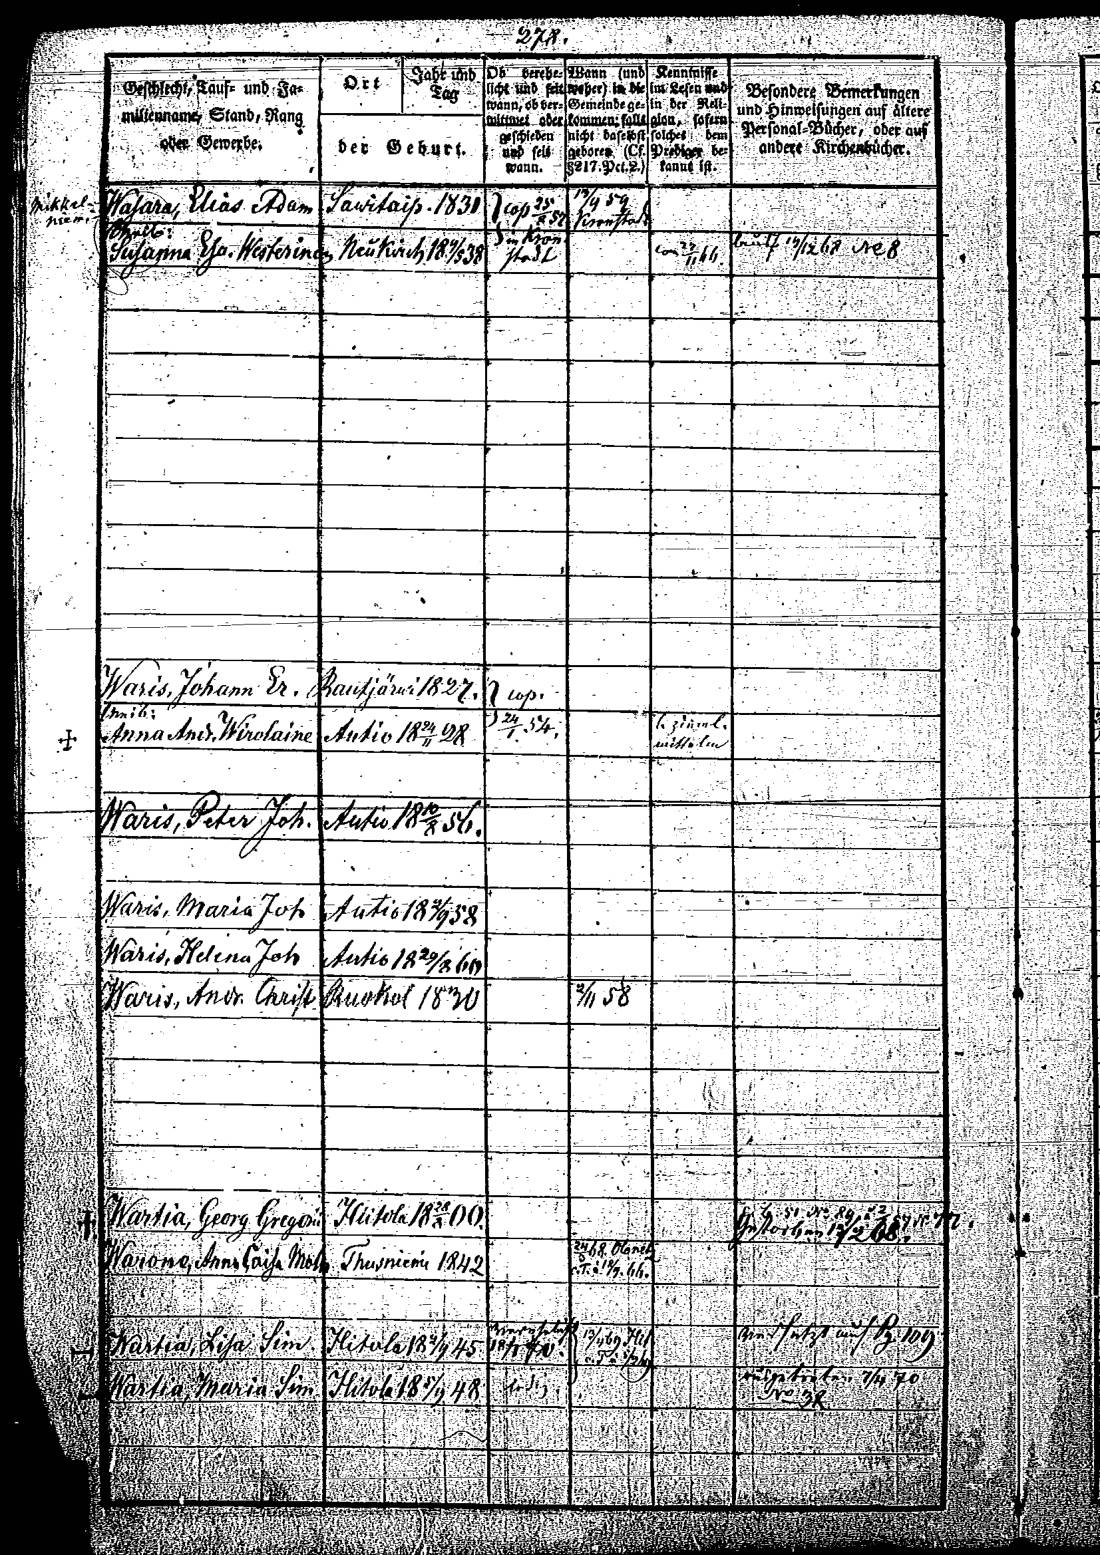 278.
Geschlecht, Tauf- und Fa-
milienname, Stand, Rang
oder Gewerbe.
Ort
Jahr und
Tag
der Geburt.
Ob verehe-
licht und seit
wann, ob ver-
wittwet oder
geschieden
und seit
wann.
Wann (und
woher) in die
Gemeinde ge-
kommen, falls
nicht daselbst
geboren. (Cf.
§217. Pct. 2.)
Kenntnisse
im Lesen und
in der Reli-
gion, sofern
solches dem
Prediger be-
kannt ist.
Besondere Bemerkungen
und Hinweisungen auf ältere
Personal-Bücher, oder auf
andere Kirchenbücher.
Wasara, Elias Adam Sawitaip. 1831 cop 25 57 13/9 59
Kronstadt
Susanna Esa. Westerinen Neukirch 18 /5 38 in Kron
stadt 12/12 68 No 8
Waris, Johann Er. Rautjärwi 1827. cop.
Weib:
Anna Andr. Wirolaine Autio 18 24/11 28 24/1 54.
Waris, Peter Joh. Autio 18 10/8 56.
Waris, Maria Joh Autio 18 21/9 58
Waris, Helena Joh Autio 18 29/8 60
Waris, Andr. Christ. Ruokol 1830 2/11 58
Wartia, Georg Gregori Hitola 18 28 00.
Gestorben 12/2 68.
Warono, Anna Caisa Math 1842
Wartia, Lisa Sim. Hitola 18 21/9 45 versetzt auf Pg. 109
Wartia, Maria Sim. Hitola 18 5/9 48 ledig ausgetreten 7/4 70
No 38